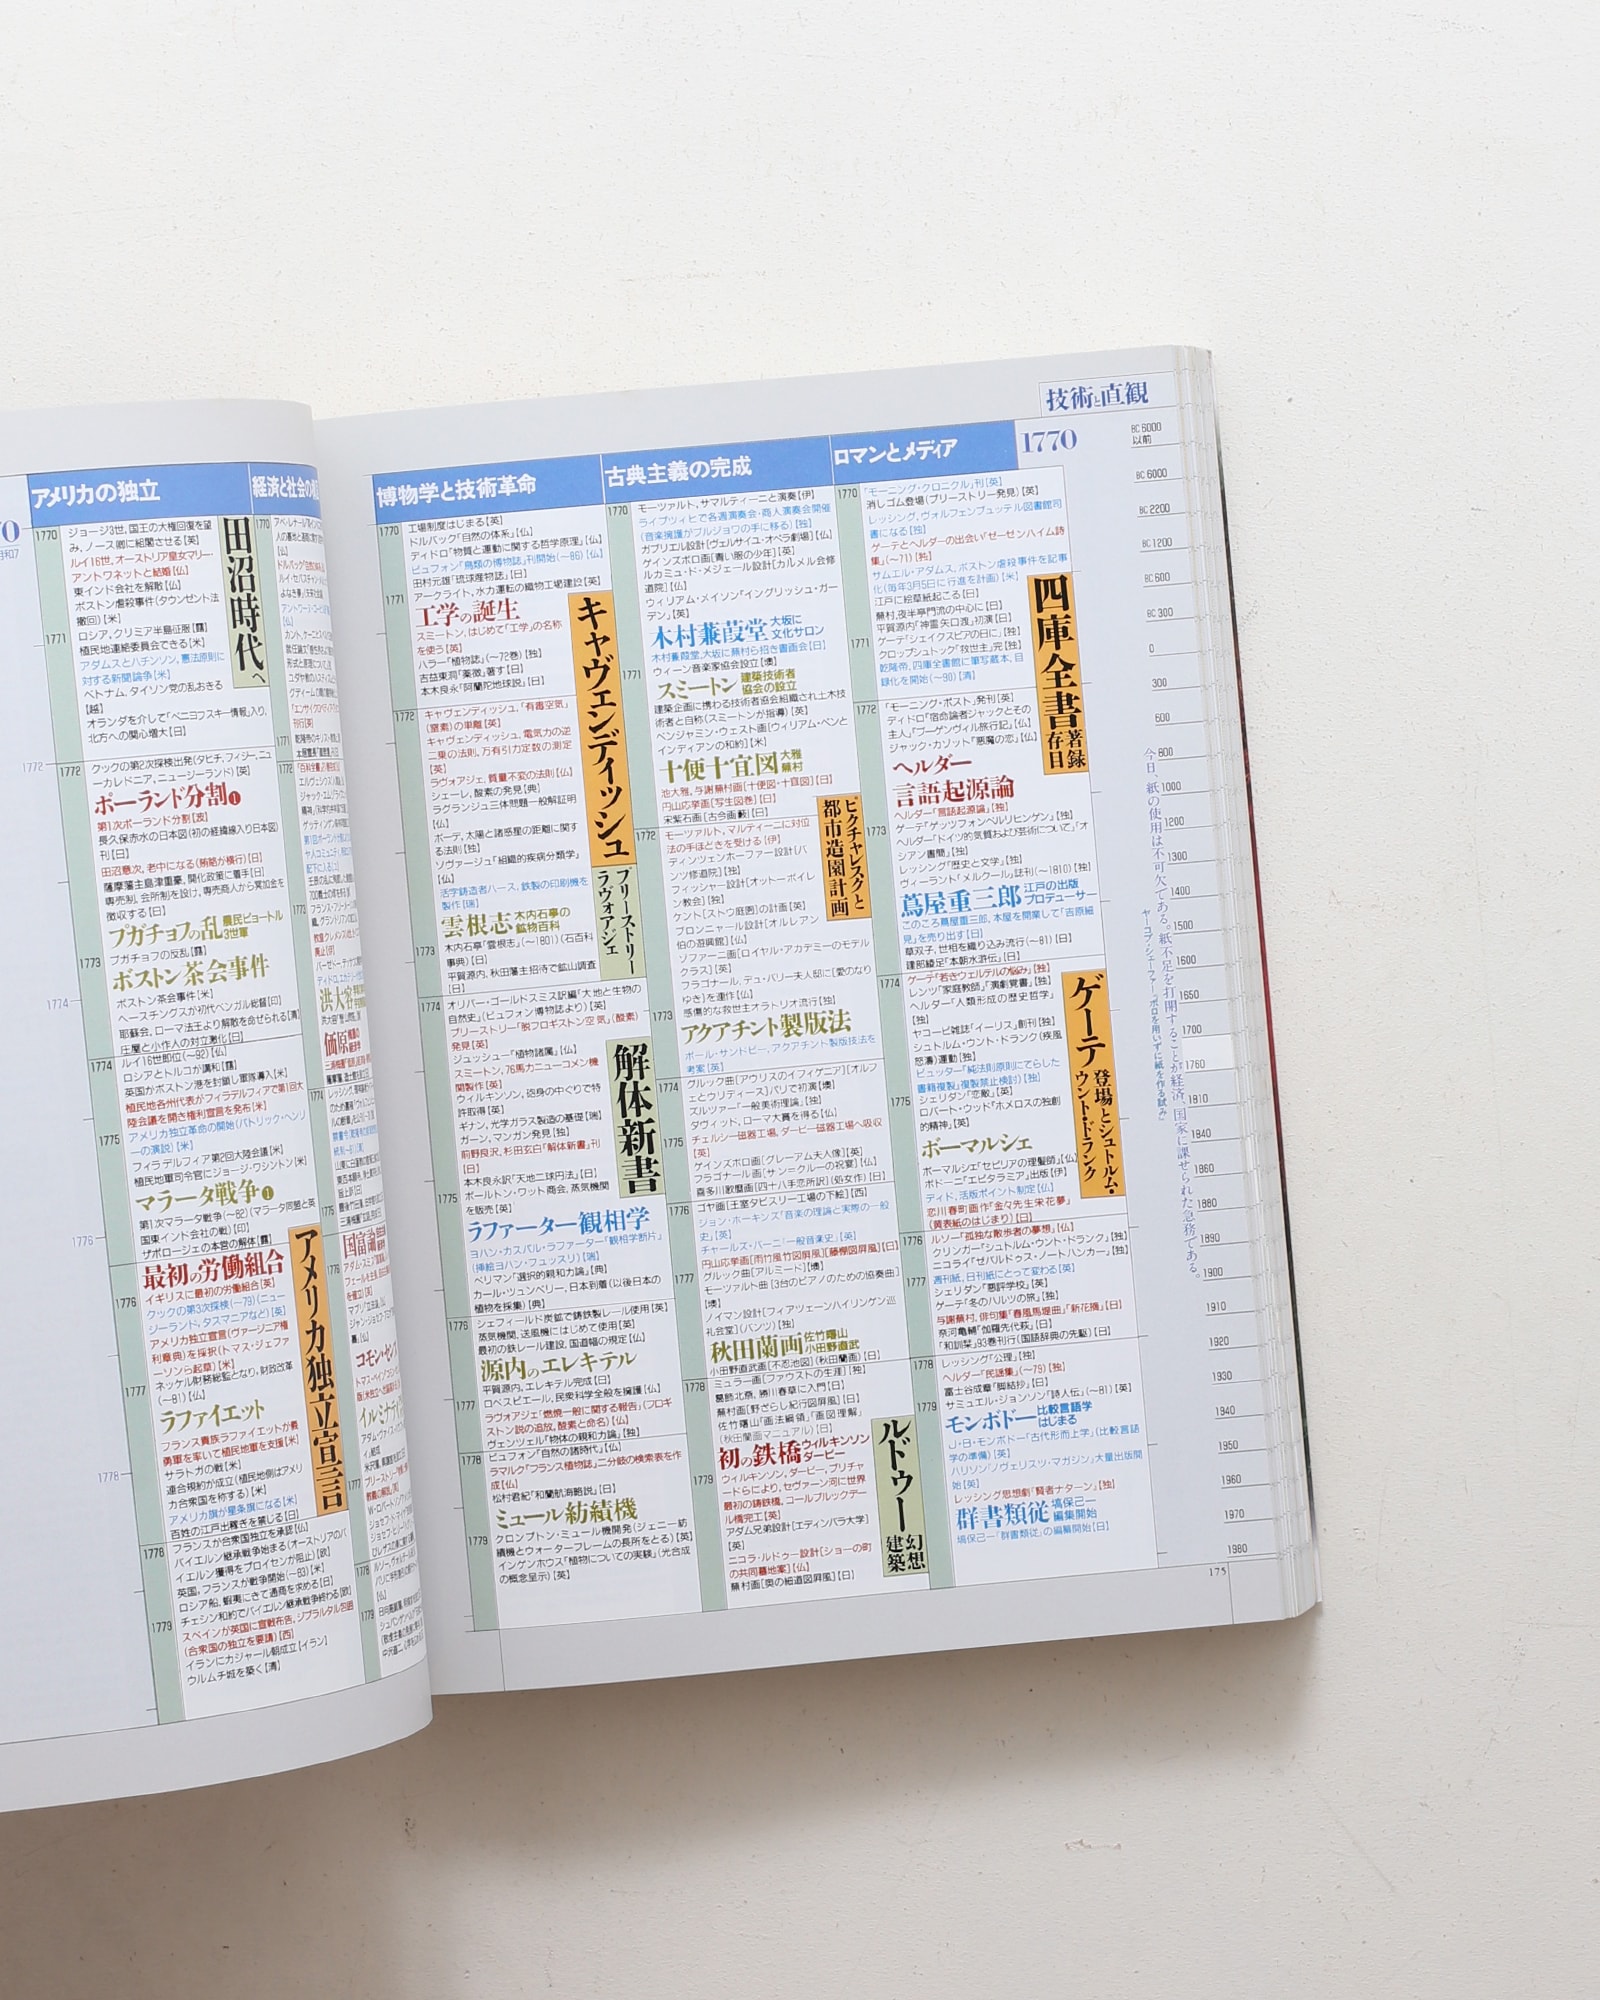 アメリカの独立
1770
ジョージ3世、国王の大権回復を望
み、ノース卿に組閣させる[英]
ルイ16世、オーストリア皇女マリー・
アントワネットと結婚[仏]
東インド会社を解散[仏]
ボストン虐殺事件(タウンゼント法
撤回)[米]
1771
ロシア、クリミア半島征服[露]
植民地連絡委員会できる[米]
アダムスとハチンソン、憲法原則に
対する新聞論争[米]
ベトナム、タイソン党の乱おきる
[越]
オランダを介して「ベニョフスキー情報」入り、
北方への関心増大[日]
田沼時代へ
1772
クックの第2次探検出発(タヒチ、フィジー、ニュ
ーカレドニア、ニュージーランド)[英]
ポーランド分割❶
第1次ポーランド分割[波]
長久保赤水の日本図(初の経緯線入り日本図)
刊[日]
田沼意次、老中になる(賄賂が横行)[日]
薩摩藩主島津重豪、開化政策に着手[日]
専売制、会所制を設け、専売商人から冥加金を
徴収する[日]
プガチョフの乱 農民ピョートル
3世軍
1773
プガチョフの反乱[露]
ボストン茶会事件
ボストン茶会事件[米]
ヘースチングスが初代ベンガル総督[印]
耶蘇会、ローマ法王より解散を命ぜられる[清]
庄屋と小作人の対立激化[日]
1774
ルイ16世即位(〜92)[仏]
ロシアとトルコが講和[露]
英国がボストン港を封鎖し軍隊導入[米]
植民地各州代表がフィラデルフィアで第1回大
陸会議を開き権利宣言を発布[米]
1775
アメリカ独立革命の開始(パトリック・ヘンリ
ーの演説)[米]
フィラデルフィア第2回大陸会議[米]
植民地軍司令官にジョージ・ワシントン[米]
マラータ戦争❶
第1次マラータ戦争(〜82)(マラータ同盟と英
国東インド会社の戦)[印]
ザポロージェの本営の解体[露]
最初の労働組合
1776
イギリスに最初の労働組合[英]
クックの第3次探検(〜79)(ニュー
ジーランド、タスマニアなど)[英]
アメリカ独立宣言(ヴァージニア権
利章典)を採択(トマス・ジェファ
ーソンら起草)[米]
1777
ネッケル財務総監となり、財政改革
(〜81)[仏]
ラファイエット
フランス貴族ラファイエットが義
勇軍を率いて植民地軍を支援[米]
サラトガの戦[米]
連合規約が成立(植民地側はアメリ
カ合衆国を称する)[米]
アメリカ旗が星条旗になる[米]
百姓の江戸出稼ぎを禁じる[日]
アメリカ独立宣言
1778
フランスが合衆国独立を承認[仏]
バイエルン継承戦争始まる(オーストリアのバ
イエルン獲得をプロイセンが阻止)[欧]
英国、フランスが戦争開始(〜83)[米]
ロシア船、蝦夷にきて通商を求める[日]
チェシン和約でバイエルン継承戦争終わる[欧]
1779
スペインが英国に宣戦布告、ジブラルタル包囲
(合衆国の独立を要請)[西]
イランにカジャール朝成立[イラン]
ウルムチ城を築く[清]
技術と直観
1770
博物学と技術革命
1770
工場制度はじまる[英]
ドルバック「自然の体系」[仏]
ディドロ「物質と運動に関する哲学原理」[仏]
ビュフォン「鳥類の博物誌」刊開始(〜86)[仏]
田村元雄「琉球産物誌」[日]
1771
アークライト、水力運転の織物工場建設[英]
工学の誕生
スミートン、はじめて「工学」の名称
を使う[英]
ハラー「植物誌」(〜72巻)[独]
吉益東洞「薬徴」著す[日]
本木良永「阿蘭陀地球説」[日]
キャヴェンディッシュ
1772
キャヴェンディッシュ、「有毒空気」
(窒素)の単離[英]
キャヴェンディッシュ、電気力の逆
二乗の法則、万有引力定数の測定
[英]
ラヴォアジェ、質量不変の法則[仏]
シェーレ、酸素の発見[典]
ラグランジュ三体問題一般解証明
[仏]
ボーデ、太陽と諸惑星の距離に関す
る法則[独]
ソヴァージュ「組織的疾病分類学」
[仏]
活字鋳造者ハース、鉄製の印刷機を
製作[瑞]
プリーストリー
ラヴォアジェ
雲根志 木内石亭の
鉱物百科
1773
木内石亭「雲根志」(〜1801)(石百科
事典)[日]
平賀源内、秋田藩主招待で鉱山調査
[日]
1774
オリバー・ゴールドスミス訳編「大地と生物の
自然史」(ビュフォン博物誌より)[英]
プリーストリー「脱フロギストン空気」(酸素)
発見[英]
ジュッシュー「植物諸属」[仏]
スミートン、76馬力ニューコメン機
関製作[英]
ウィルキンソン、砲身の中ぐりで特
許取得[英]
ギナン、光学ガラス製造の基礎[瑞]
ガーン、マンガン発見[独]
前野良沢、杉田玄白「解体新書」刊
[日]
本木良永訳「天地二球円法」[日]
解体新書
1775
ボールトン・ワット商会、蒸気機関
を販売[英]
ラファーター観相学
ヨハン・カスパル・ラファーター「観相学断片」
(挿絵ヨハン・フュッスリ)[瑞]
ベリマン「選択的親和力論」[典]
カール・ツュンベリー、日本到着(以後日本の
植物を採集)[典]
1776
シェフィールド炭鉱で鋳鉄製レール使用[英]
蒸気機関、送風機にはじめて使用[英]
最初の鉄レール建設、国道幅の規定[仏]
源内のエレキテル
平賀源内、エレキテル完成[日]
1777
ロベスピエール、民衆科学全般を擁護[仏]
ラヴォアジェ「燃焼一般に関する報告」(フロギ
ストン説の追放、酸素と命名)[仏]
ヴェンツェル「物体の親和力論」[独]
1778
ビュフォン「自然の諸時代」[仏]
ラマルク「フランス植物誌」二分岐の検索表を作
成[仏]
松村君紀「和蘭航海略説」[日]
ミュール紡績機
1779
クロンプトン・ミュール機開発(ジェニー紡
績機とウォーターフレームの長所をとる)[英]
インゲンホウス「植物についての実験」(光合成
の概念呈示)[英]
古典主義の完成
1770
モーツァルト、サマルティーニと演奏[伊]
ライプツィヒで各週演奏会・商人演奏会開催
(音楽擁護がブルジョワの手に移る)[独]
ガブリエル設計[ヴェルサイユ・オペラ劇場][仏]
ゲインズボロ画[青い服の少年][英]
ルカミュ・ド・メジェール設計[カルメル会修
道院][仏]
ウィリアム・メイソン「イングリッシュ・ガー
デン」[英]
木村蒹葭堂 大坂に
文化サロン
木村蒹葭堂、大坂に蕪村ら招き書画会[日]
ウィーン音楽家協会設立[墺]
1771
スミートン 建築技術者
協会の設立
建築企画に携わる技術者協会組織され土木技
術者と自称(スミートンが指導)[英]
ベンジャミン・ウェスト画[ウィリアム・ペンと
インディアンの和約][米]
十便十宜図 大雅
蕪村
池大雅、与謝蕪村画[十便図・十宜図][日]
円山応挙画[写生図巻][日]
宋紫石画[古今画薮][日]
1772
モーツァルト、マルティーニに対位
法の手ほどきを受ける[伊]
ディンツェンホーファー設計[バ
ンツ修道院][独]
フィッシャー設計[オットーボイレ
ン教会][独]
ケント[ストウ庭園]の計画[英]
ブロンニャール設計[オルレアン
伯の遊興館][仏]
ゾファーニ画[ロイヤル・アカデミーのモデル
クラス][英]
フラゴナール、デュ・バリー夫人邸に[愛のなり
ゆき]を連作[仏]
感傷的な救世主オラトリオ流行[独]
ピクチャレスクと
都市造園計画
1773
アクアチント製版法
ポール・サンドビー、アクアチント製版技法を
考案[英]
1774
グルック曲[アウリスのイフィゲニア][オルフ
ェとウリディース]パリで初演[墺]
ズルツァー「一般美術理論」[独]
ダヴィット、ローマ大賞を得る[仏]
1775
チェルシー磁器工場、ダービー磁器工場へ吸収
[英]
ゲインズボロ画[グレーアム夫人像][英]
フラゴナール画[サン＝クルーの祝宴][仏]
喜多川歌麿画[四十八手恋所訳](処女作)[日]
1776
ゴヤ画[王室タピスリー工場の下絵][西]
ジョン・ホーキンズ「音楽の理論と実際の一般
史」[英]
チャールズ・バーニ「一般音楽史」[英]
円山応挙画[雨竹風竹図屏風][藤棚図屏風][日]
1777
グルック曲[アルミード][墺]
モーツァルト曲[3台のピアノのための協奏曲]
[墺]
ノイマン設計[フィアツェーンハイリンゲン巡
礼会堂](バンツ)[独]
秋田蘭画 佐竹曙山
小田野直武
小田野直武画[不忍池図](秋田蘭画)[日]
1778
ミュラー画[ファウストの生涯][独]
葛飾北斎、勝川春草に入門[日]
蕪村画[野ざらし紀行図屏風][日]
佐竹曙山「画法綱領」「画図理解」
(秋田蘭画マニュアル)[日]
初の鉄橋 ウィルキンソン
ダービー
1779
ウィルキンソン、ダービー、プリチャ
ードらにより、セヴァーン河に世界
最初の鋳鉄橋、コールブルックデー
ル橋完工[英]
アダム兄弟設計[エディンバラ大学]
[英]
ニコラ・ルドゥー設計[ショーの町
の共同墓地案][仏]
蕪村画[奥の細道図屏風][日]
ルドゥー 幻想
建築
ロマンとメディア
1770
「モーニング・クロニクル」刊[英]
消しゴム登場(プリーストリー発見)[英]
レッシング、ヴォルフェンブュッテル図書館司
書になる[独]
ゲーテとヘルダーの出会い「ゼーゼンハイム詩
集」(〜71)[独]
サムエル・アダムス、ボストン虐殺事件を記事
化(毎年3月5日に行進を計画)[米]
江戸に絵草紙起こる[日]
蕪村、夜半亭門流の中心に[日]
平賀源内「神霊矢口渡」初演[日]
1771
ゲーテ「シェイクスピアの日に」[独]
クロップシュトック「救世主」完[独]
乾隆帝、四庫全書館に筆写蔵本、目
録化を開始(〜90)[清]
四庫全書 著録
存目
1772
「モーニング・ポスト」発刊[英]
ディドロ「宿命論者ジャックとその
主人」「ブーゲンヴィル旅行記」[仏]
ジャック・カゾット「悪魔の恋」[仏]
ヘルダー
言語起源論
ヘルダー「言語起源論」[独]
1773
ゲーテ「ゲッツフォンベルリヒンゲン」[独]
ヘルダー「ドイツ的気質および芸術について」「オ
シアン書簡」[独]
レッシング「歴史と文学」[独]
ヴィーラント「メルクール」誌刊(〜1810)[独]
蔦屋重三郎 江戸の出版
プロデューサー
このころ蔦屋重三郎、本屋を開業して「吉原細
見」を売り出す[日]
草双子、世相を織り込み流行(〜81)[日]
建部綾足「本朝水滸伝」[日]
1774
ゲーテ「若きウェルテルの悩み」[独]
レンツ「家庭教師」「演劇覚書」[独]
ヘルダー「人類形成の歴史哲学」
[独]
ヤコービ雑誌「イーリス」創刊[独]
シュトルム・ウント・ドランク(疾風
怒濤)運動[独]
ピュッター「純法則原則にてらした
書籍複製」複製禁止検討)[独]
1775
シェリダン「恋敵」[英]
ロバート・ウッド「ホメロスの独創
的精神」[英]
ボーマルシェ
ボーマルシェ「セビリアの理髪師」[仏]
ボドーニ「エピタラミア」出版[伊]
ディド、活版ポイント制定[仏]
恋川春町画作「金々先生栄花夢」
(黄表紙のはじまり)[日]
ゲーテ 登場とシュトルム・
ウント・ドランク
1776
ルソー「孤独な散歩者の夢想」[仏]
クリンガー「シュトルム・ウント・ドランク」[独]
ニコライ「ゼバルドゥス・ノートハンカー」[独]
1777
週刊紙、日刊紙にとって変わる[英]
シェリダン「悪評学校」[英]
ゲーテ「冬のハルツの旅」[独]
与謝蕪村、俳句集「春風馬堤曲」「新花摘」[日]
奈河亀輔「伽羅先代萩」[日]
「和訓栞」93巻刊行(国語辞典の先駆)[日]
1778
レッシング「公理」[独]
ヘルダー「民謡集」(〜79)[独]
富士谷成章「脚結抄」[日]
サミュエル・ジョンソン「詩人伝」(〜81)[英]
1779
モンボドー 比較言語学
はじまる
J・B・モンボドー「古代形而上学」(比較言語
学の準備)[英]
ハリソン「ノヴェリスツ・マガジン」大量出版開
始[英]
レッシング思想劇「賢者ナターン」[独]
群書類従 塙保己一
編集開始
塙保己一「群書類従」の編纂開始[日]
BC 6000
以前
BC 6000
BC 2200
BC 1200
BC 600
BC 300
0
300
600
800
1000
1200
1300
1400
1500
1600
1650
1700
1760
1810
1840
1860
1880
1890
1900
1910
1920
1930
1940
1950
1960
1970
1980
今日、紙の使用は不可欠である。紙不足を打開することが経済、国家に課せられた急務である。
ヤーコプ・シェーファー「ボロを用いずに紙を作る試み」
175